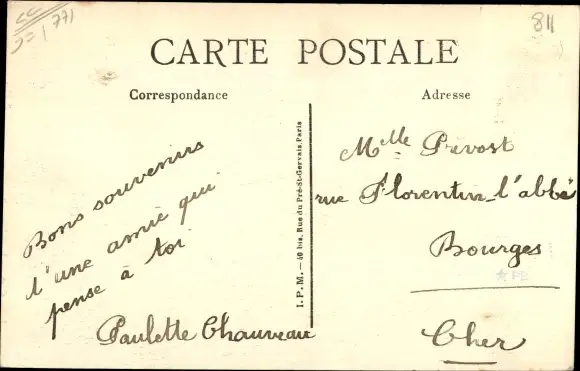 811
CARTE POSTALE
Correspondance
Adresse
Bons souvenirs
d'une amie qui
pense à toi
Paulette Chauveau
I.P.M. — 40 bis, Rue du Pré-St-Gervais, Paris
Melle Prévost
rue Florentin-l'abbé
Bourges
Cher